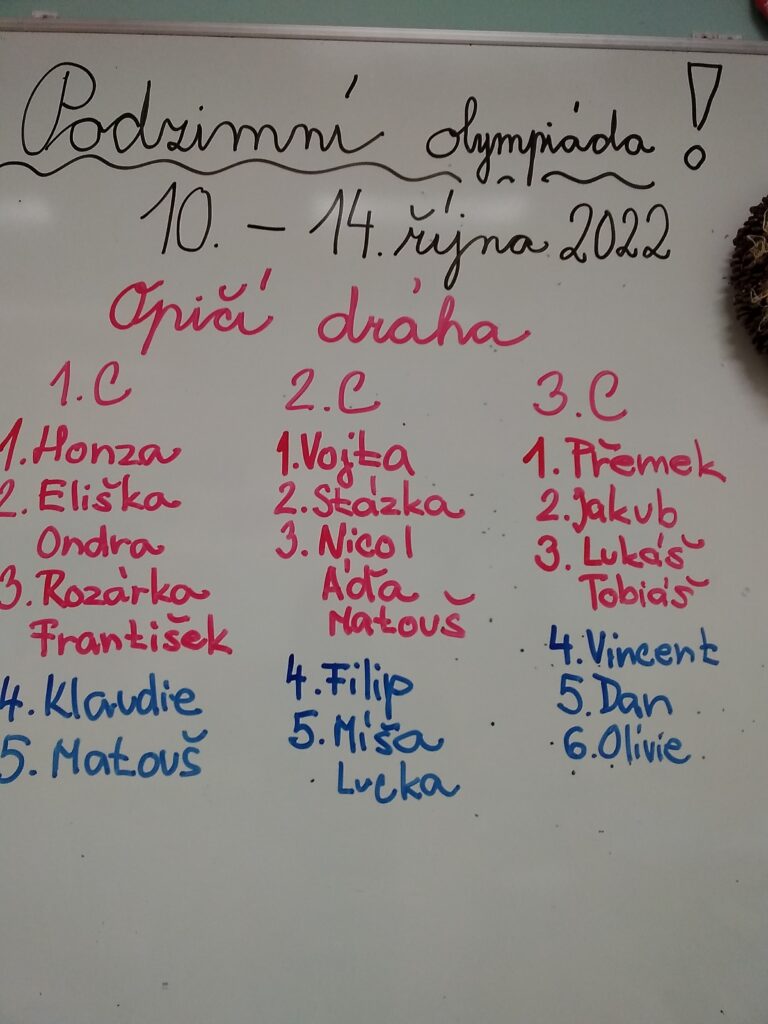 Podzimní olympiáda!
10. – 14. října 2022
Opičí dráha
1. C
1. Honza
2. Eliška
Ondra
3. Rozárka
František
4. Klaudie
5. Matouš
2. C
1. Vojta
2. Stázka
3. Nicol
Áďa
Matouš
4. Filip
5. Míša
Lucka
3. C
1. Přemek
2. Jakub
3. Lukáš
Tobiáš
4. Vincent
5. Dan
6. Olivie